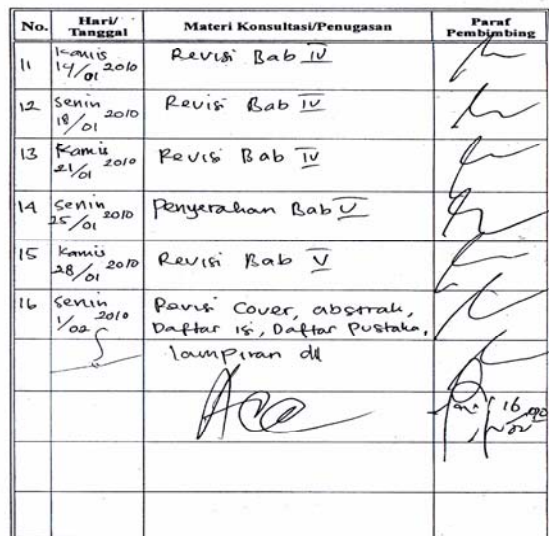 No. Hari/Tanggal Materi Konsultasi/Penugasan Paraf Pembimbing
11 Kamis 14/01 2010 Revisi Bab IV
12 Senin 18/01 2010 Revisi Bab IV
13 Kamis 21/01 2010 Revisi Bab IV
14 Senin 25/01 2010 Penyerahan Bab V
15 Kamis 28/01 2010 Revisi Bab V
16 Senin 1/02 2010 Revisi Cover, abstrak,
Daftar isi, Daftar Pustaka,
lampiran dll
Acc
16